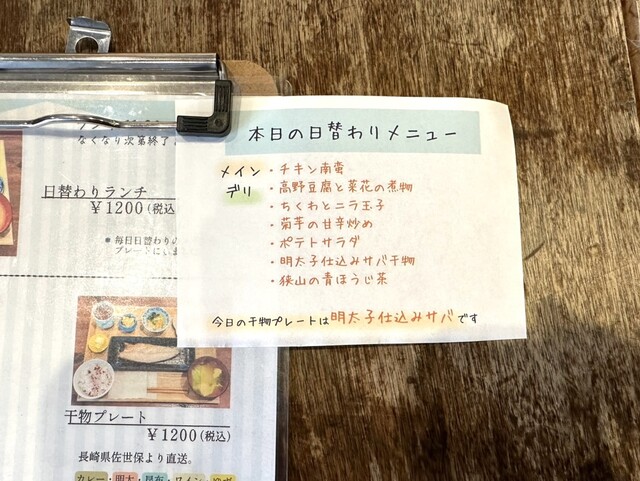 なくなり次第終了
日替わりランチ
¥1200(税込
＊毎日日替わりの
干物プレート
¥1200(税込)
長崎県佐世保より直送。
カレー・明太・昆布・ワイン・
本日の日替わりメニュー
メイン・チキン南蛮
デリ・高野豆腐と菜花の煮物
・ちくわとニラ玉子
・菊芋の甘辛炒め
・ポテトサラダ
・明太子仕込みサバ干物
・狭山の青ほうじ茶
今日の干物プレートは明太子仕込みサバです